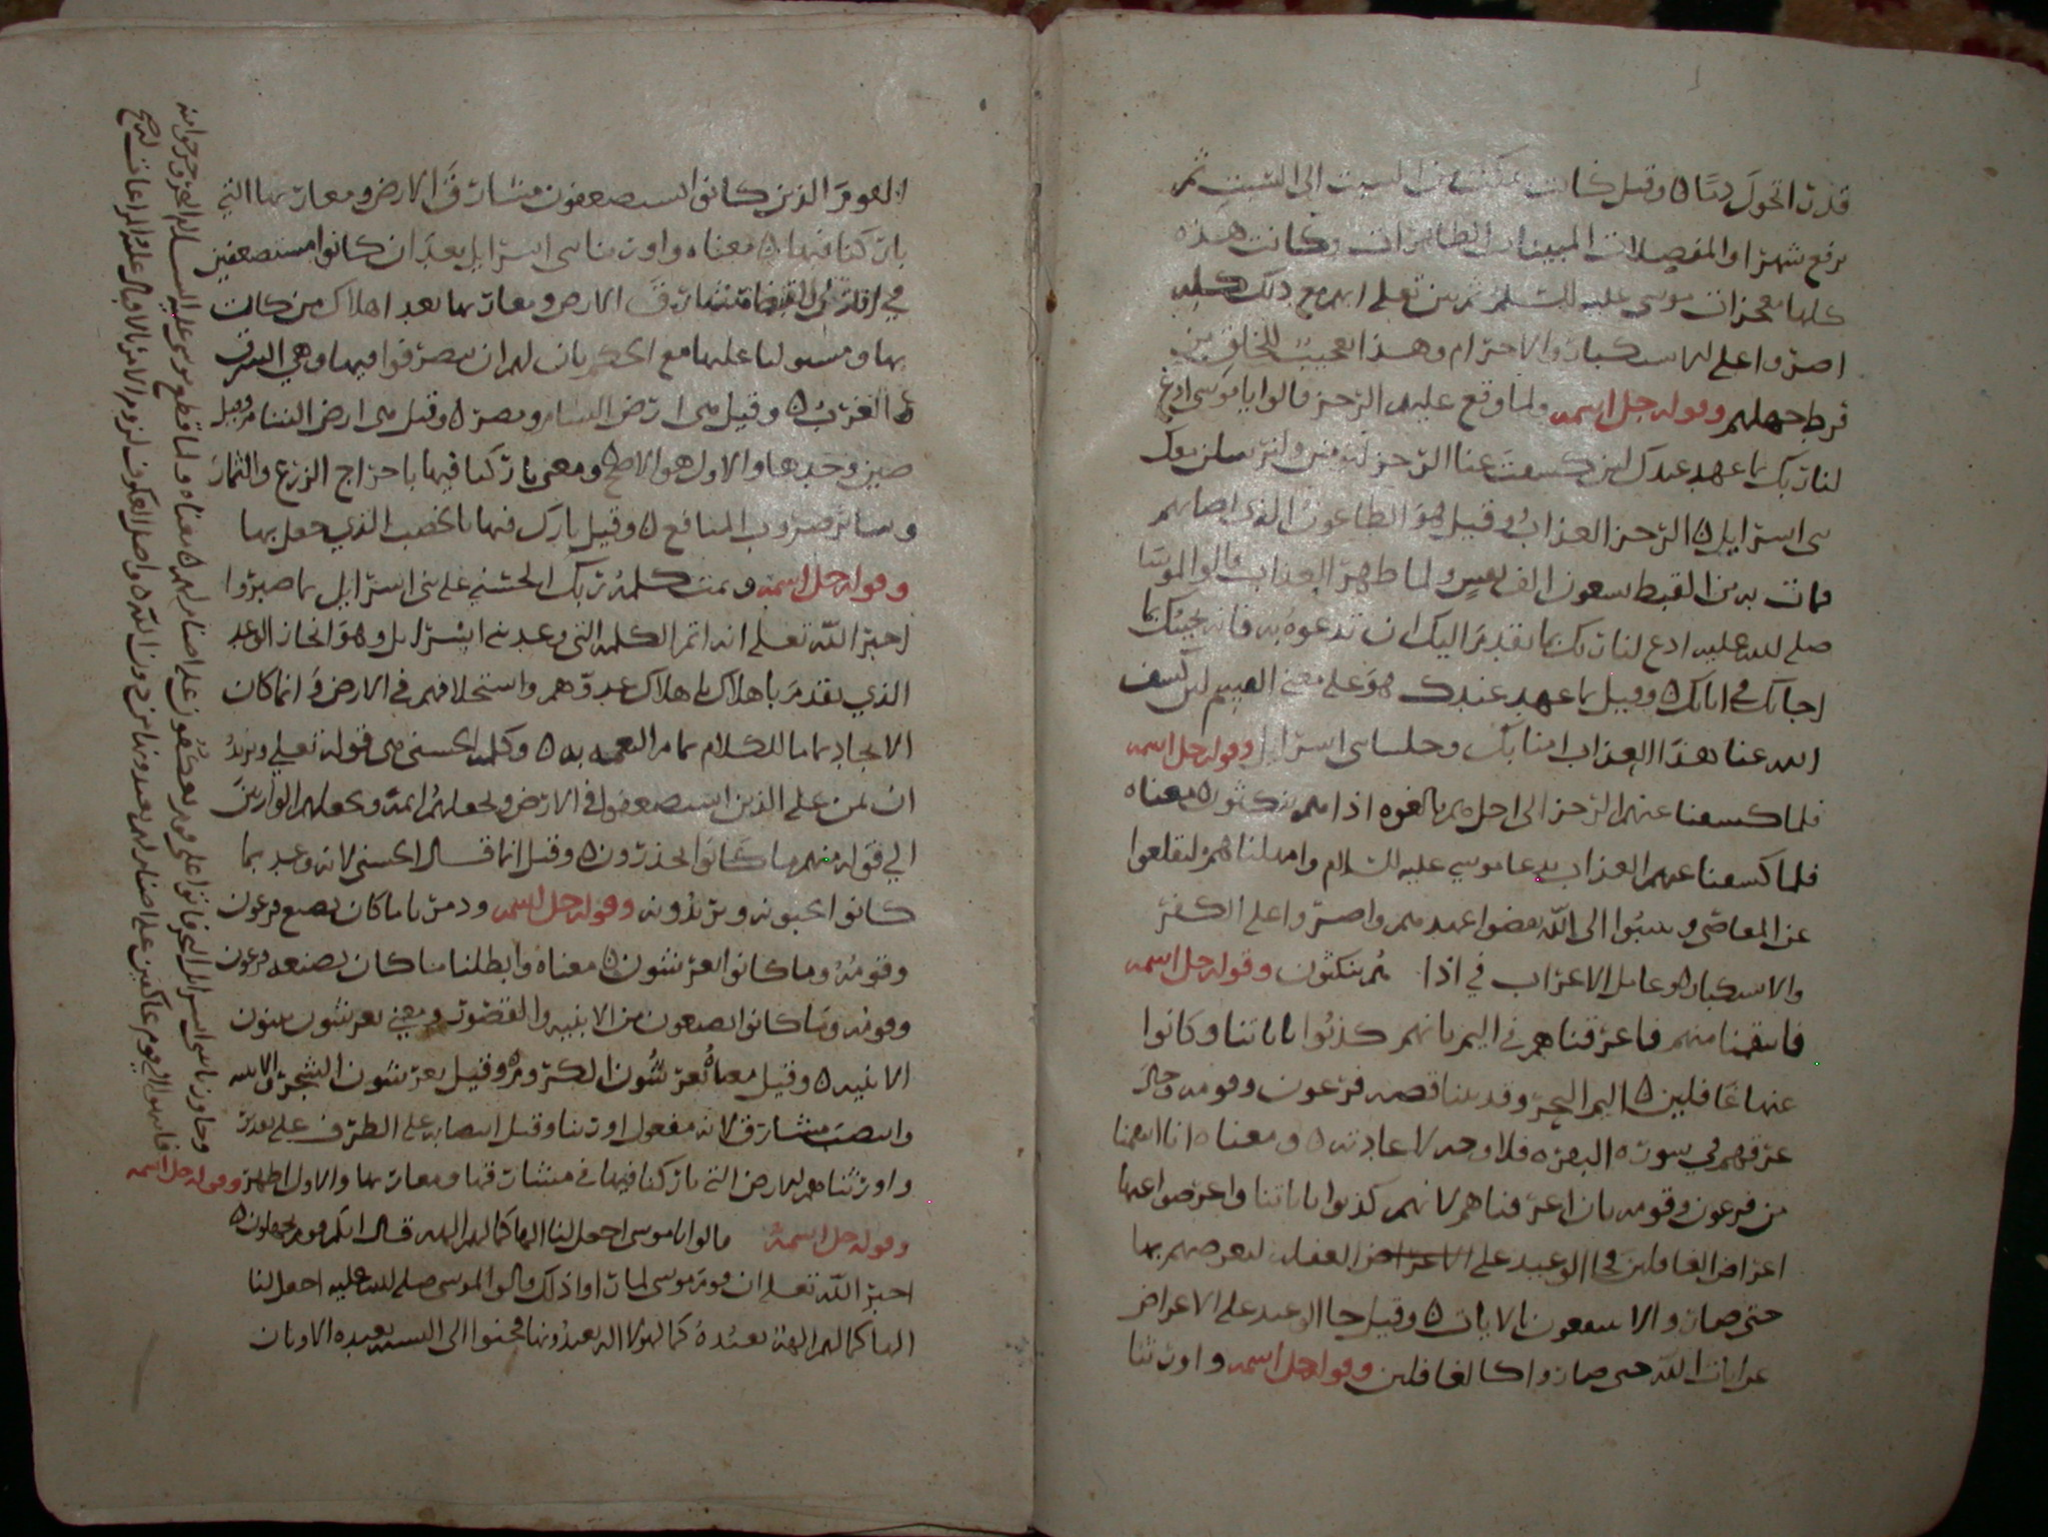 قدرت اتحول دما ٥ وقيل كانت تمكث من السبت الى السبت ثم
يرفع شهرا والمفصلات المبينات الظاهرات وكانت هذه
كلها معجزات موسى عليه السلم ثم بين تعلى انهم مع ذلك كله
اصروا على الاستكبار والاجترام وهذا تعجيب للخلق من
فرط جهلهم وقوله جل اسمه ولما وقع عليهم الرجز قالوا يا موسى ادع
لنا ربك بما عهد عندك لئن كشفت عنا الرجز لنومنن ولنرسلن معك
بني اسرايل ٥ الرجز العذاب وقيل هو الطاعون الذي اصابهم
فمات به من القبط سبعون الف نفس ولما ظهر العذاب قالوا لموسى
صلى الله عليه ادع لنا ربك بما تقدم اليك ان تدعوه به فانه يجيبك كما
اجابك في اياتك ٥ وقيل بما عهد عندك هو على معنى القسم لئن كشف
الله عنا هذا العذاب امنا بك وخلينا بني اسرايل وقوله جل اسمه
فلما كشفنا عنهم الرجز الى اجل هم بالغوه اذا هم ينكثون ٥ معناه
فلما كشفنا عنهم العذاب بدعا موسي عليه السلام وامهلناهم ليقلعوا
عن المعاصي ويتيبوا الى الله نقضوا عهدهم واصروا على الكفر
والاستكبار ٥ وعامل الاعراب في اذا هم ينكثون وقوله جل اسمه
فانتقمنا منهم فاغرقناهم في اليم بانهم كذبوا باياتنا وكانوا
عنها غافلين ٥ اليم البحر وقد بينا قصه فرعون وقومه وحال
غرقهم في سورة البقره فلا وجه لاعادته ٥ ومعناه انا انتقمنا
من فرعون وقومه بان اغرقناهم لانهم كذبوا باياتنا واعرضوا عنها
اعراض الغافلين فجا الوعيد على الاعراض الغفله لتعرضهم بها
حتى صاروا لا ينتفعون بالايات ٥ وقيل جا الوعيد على الاعراض
عن ايات الله حتى صاروا كالغافلين وقوله جل اسمه واورثنا
القوم الذين كانوا يستضعفون مشارق الارض ومغاربها التي
باركنا فيها ٥ معناه واورثنا بني اسرايل بعد ان كانوا مستضعفين
في ايدي القبط مشارق الارض ومغاربها بعد اهلاك من كان
بها ومسولنا عليها مع الحكم بان لهم ان يتصرفوا فيها وهي الشرق
والغرب ٥ وقيل هي ارض الشام ومصر ٥ وقيل هي ارض الشام وقيل
مصر وحدها والاول هو الاصح ٥ ومعنى باركنا فيها باخراج الزرع والثمار
وساير ضروب المنافع ٥ وقيل بارك فيها بالخصب الذي جعل بها
وقوله جل اسمه وتمت كلمة ربك الحسني على بني اسرايل بما صبروا
اخبر الله تعلى انه اتم الكلمه التى وعد بني اسرايل وهو انجاز الوعد
الذي تقدم باهلاك هلاك عدوهم واستخلافهم في الارض وانما كان
الانجاز تماما للكلام تمام النعمه به ٥ وكلمه الحسنى هي قوله تعلى ونريد
ان نمن على الذين استضعفوا في الارض ونجعلهم ايمة ونجعلهم الوارثين
الى قوله منهم ما كانوا يحذرون ٥ وقيل انما قال الحسنى لانه وعد بما
كانوا يحبونه ويريدونه وقوله جل اسمه ودمرنا ما كان يصنع فرعون
وقومه وما كانوا يعرشون ٥ معناه وابطلنا ما كان يصنعه فرعون
وقومه وما كانوا يصنعون من الابنيه والقصور ومعنى يعرشون يبنون
الابنيه ٥ وقيل معناه يعرشون الكروم ٥ وقيل يعرشون الشجر والابنيه
وانتصب مشارق لانه مفعول اورثنا وقيل انتصابه على الظرف على تقدير
واورثناهم الارض التي باركنا فيها في مشارقها ومغاربها والاول اظهر وقوله جل اسمه
وجاوزنا ببني اسرايل البحر فاتوا على قوم يعكفون على اصنام لهم ٥ معناه ولما قطع موسى عليه السلام ببني اسرايل البحر وخرجوا منه
فانتهوا الى قوم عاكفين على اصنام لهم يعبدونها من دون الله ٥ واصل العكوف لزوم الامر بالاقبال عليه والمراعات له
وقوله جل اسمه قالوا يا موسى اجعل لنا الها كما لهم الهه قال انكم قوم تجهلون ٥
اخبر الله تعلى ان قوم موسى لما راوا ذلك قالوا لموسى صلى الله عليه اجعل لنا
الها كما لهم الهة نعبده كما لهولا اله يعبدونها فحنوا الى التشبه بعبده الاوثان